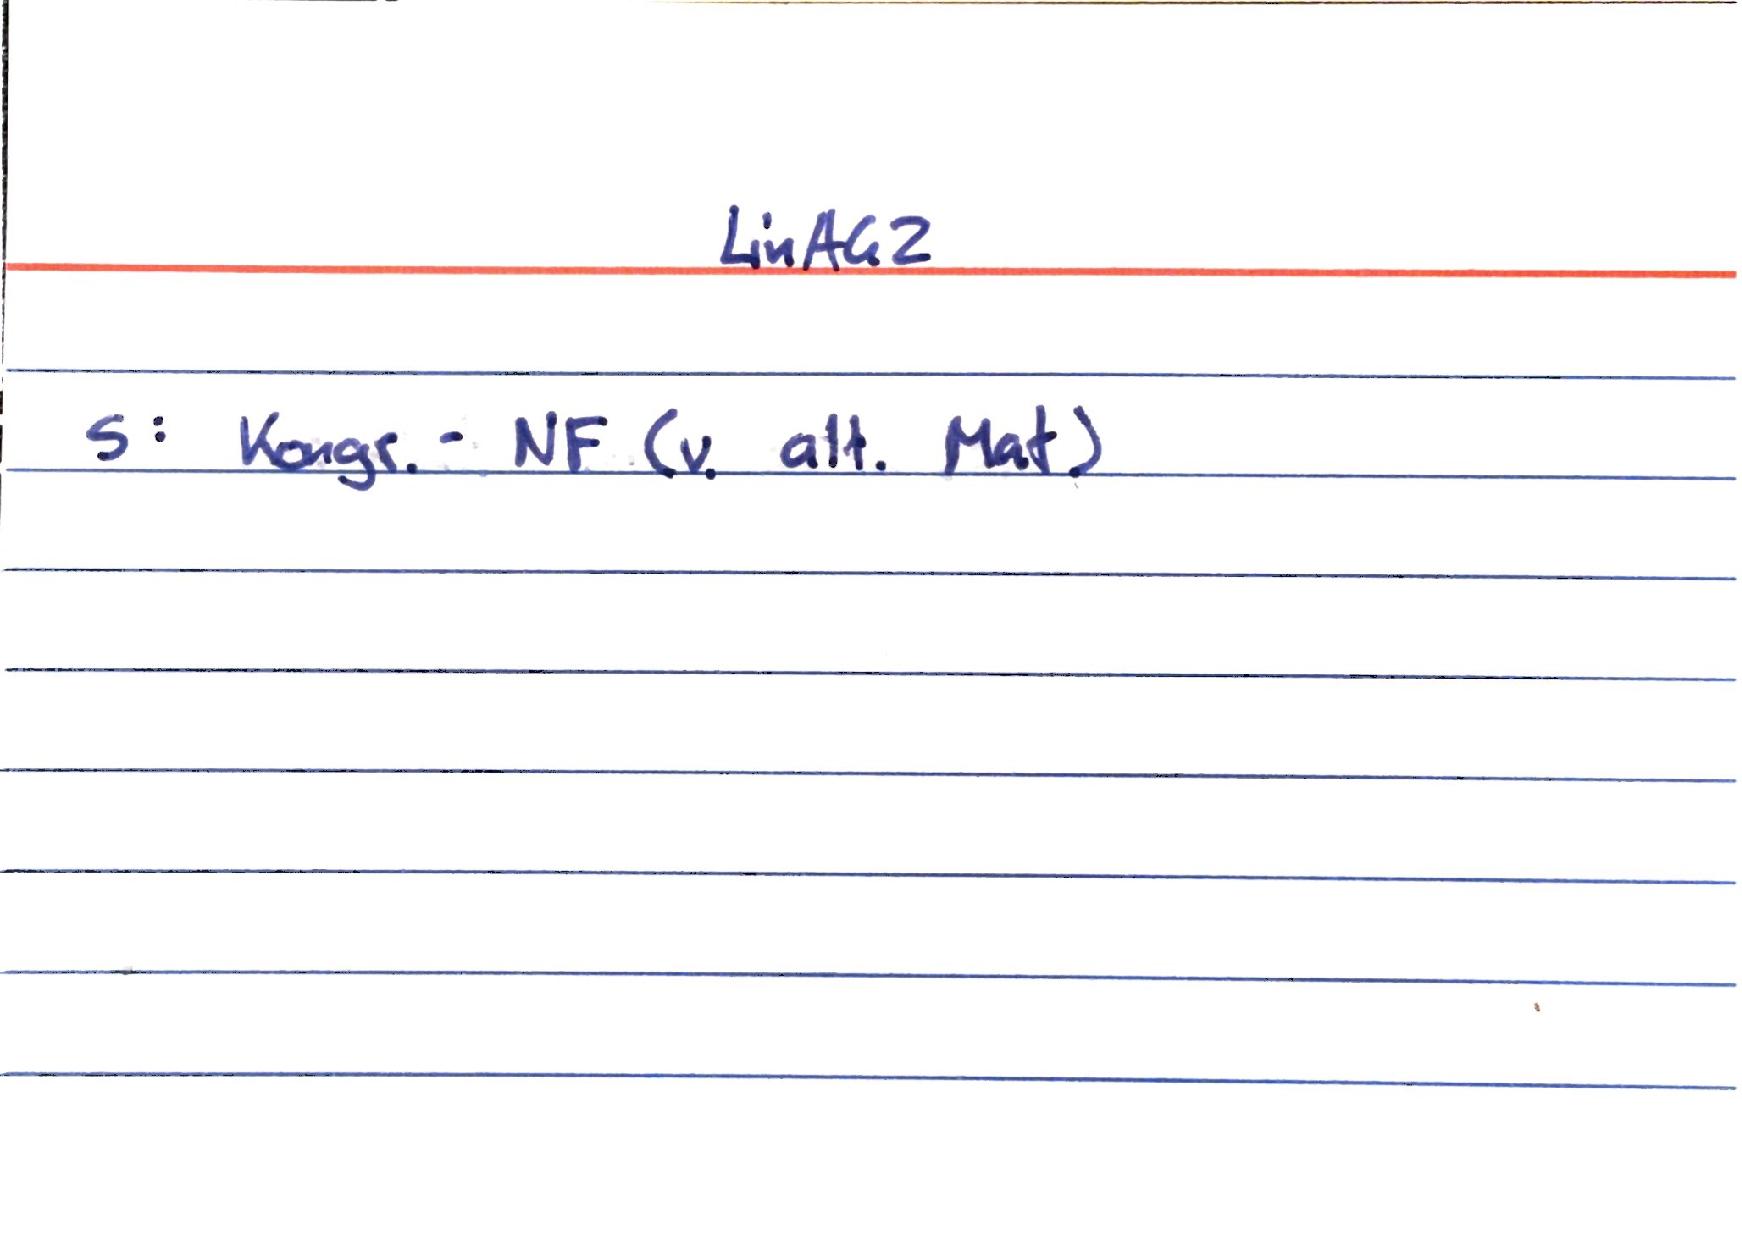 LinAG2
S: Kongr.-NF (v. alt. Mat)